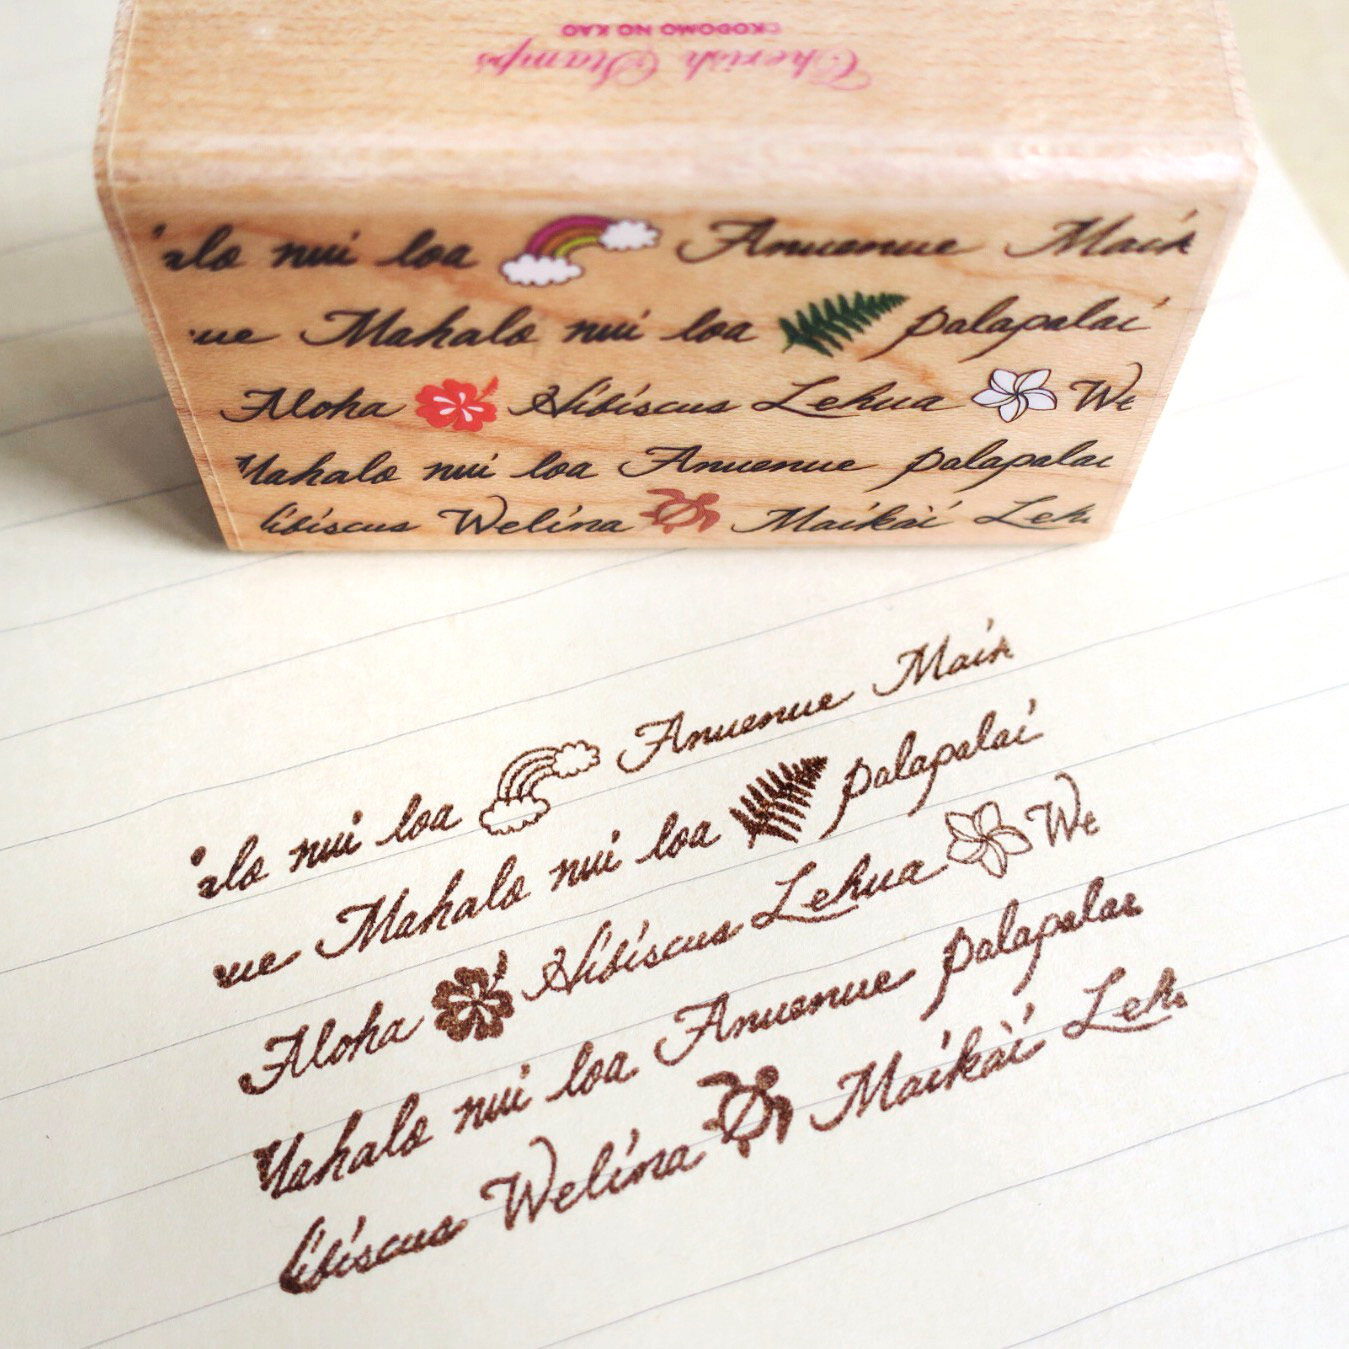 Cherish Stamps
KODOMO NO KAO
alo nui loa Anuenue Maik
ue Mahalo nui loa palapalai
Aloha Hibiscus Lehua We
Mahalo nui loa Anuenue palapalai
ibiscus Welina Maikai Leh
alo nui loa Anuenue Maik
ue Mahalo nui loa palapalai
Aloha Hibiscus Lehua We
Mahalo nui loa Anuenue palapalai
ibiscus Welina Maikai Leh